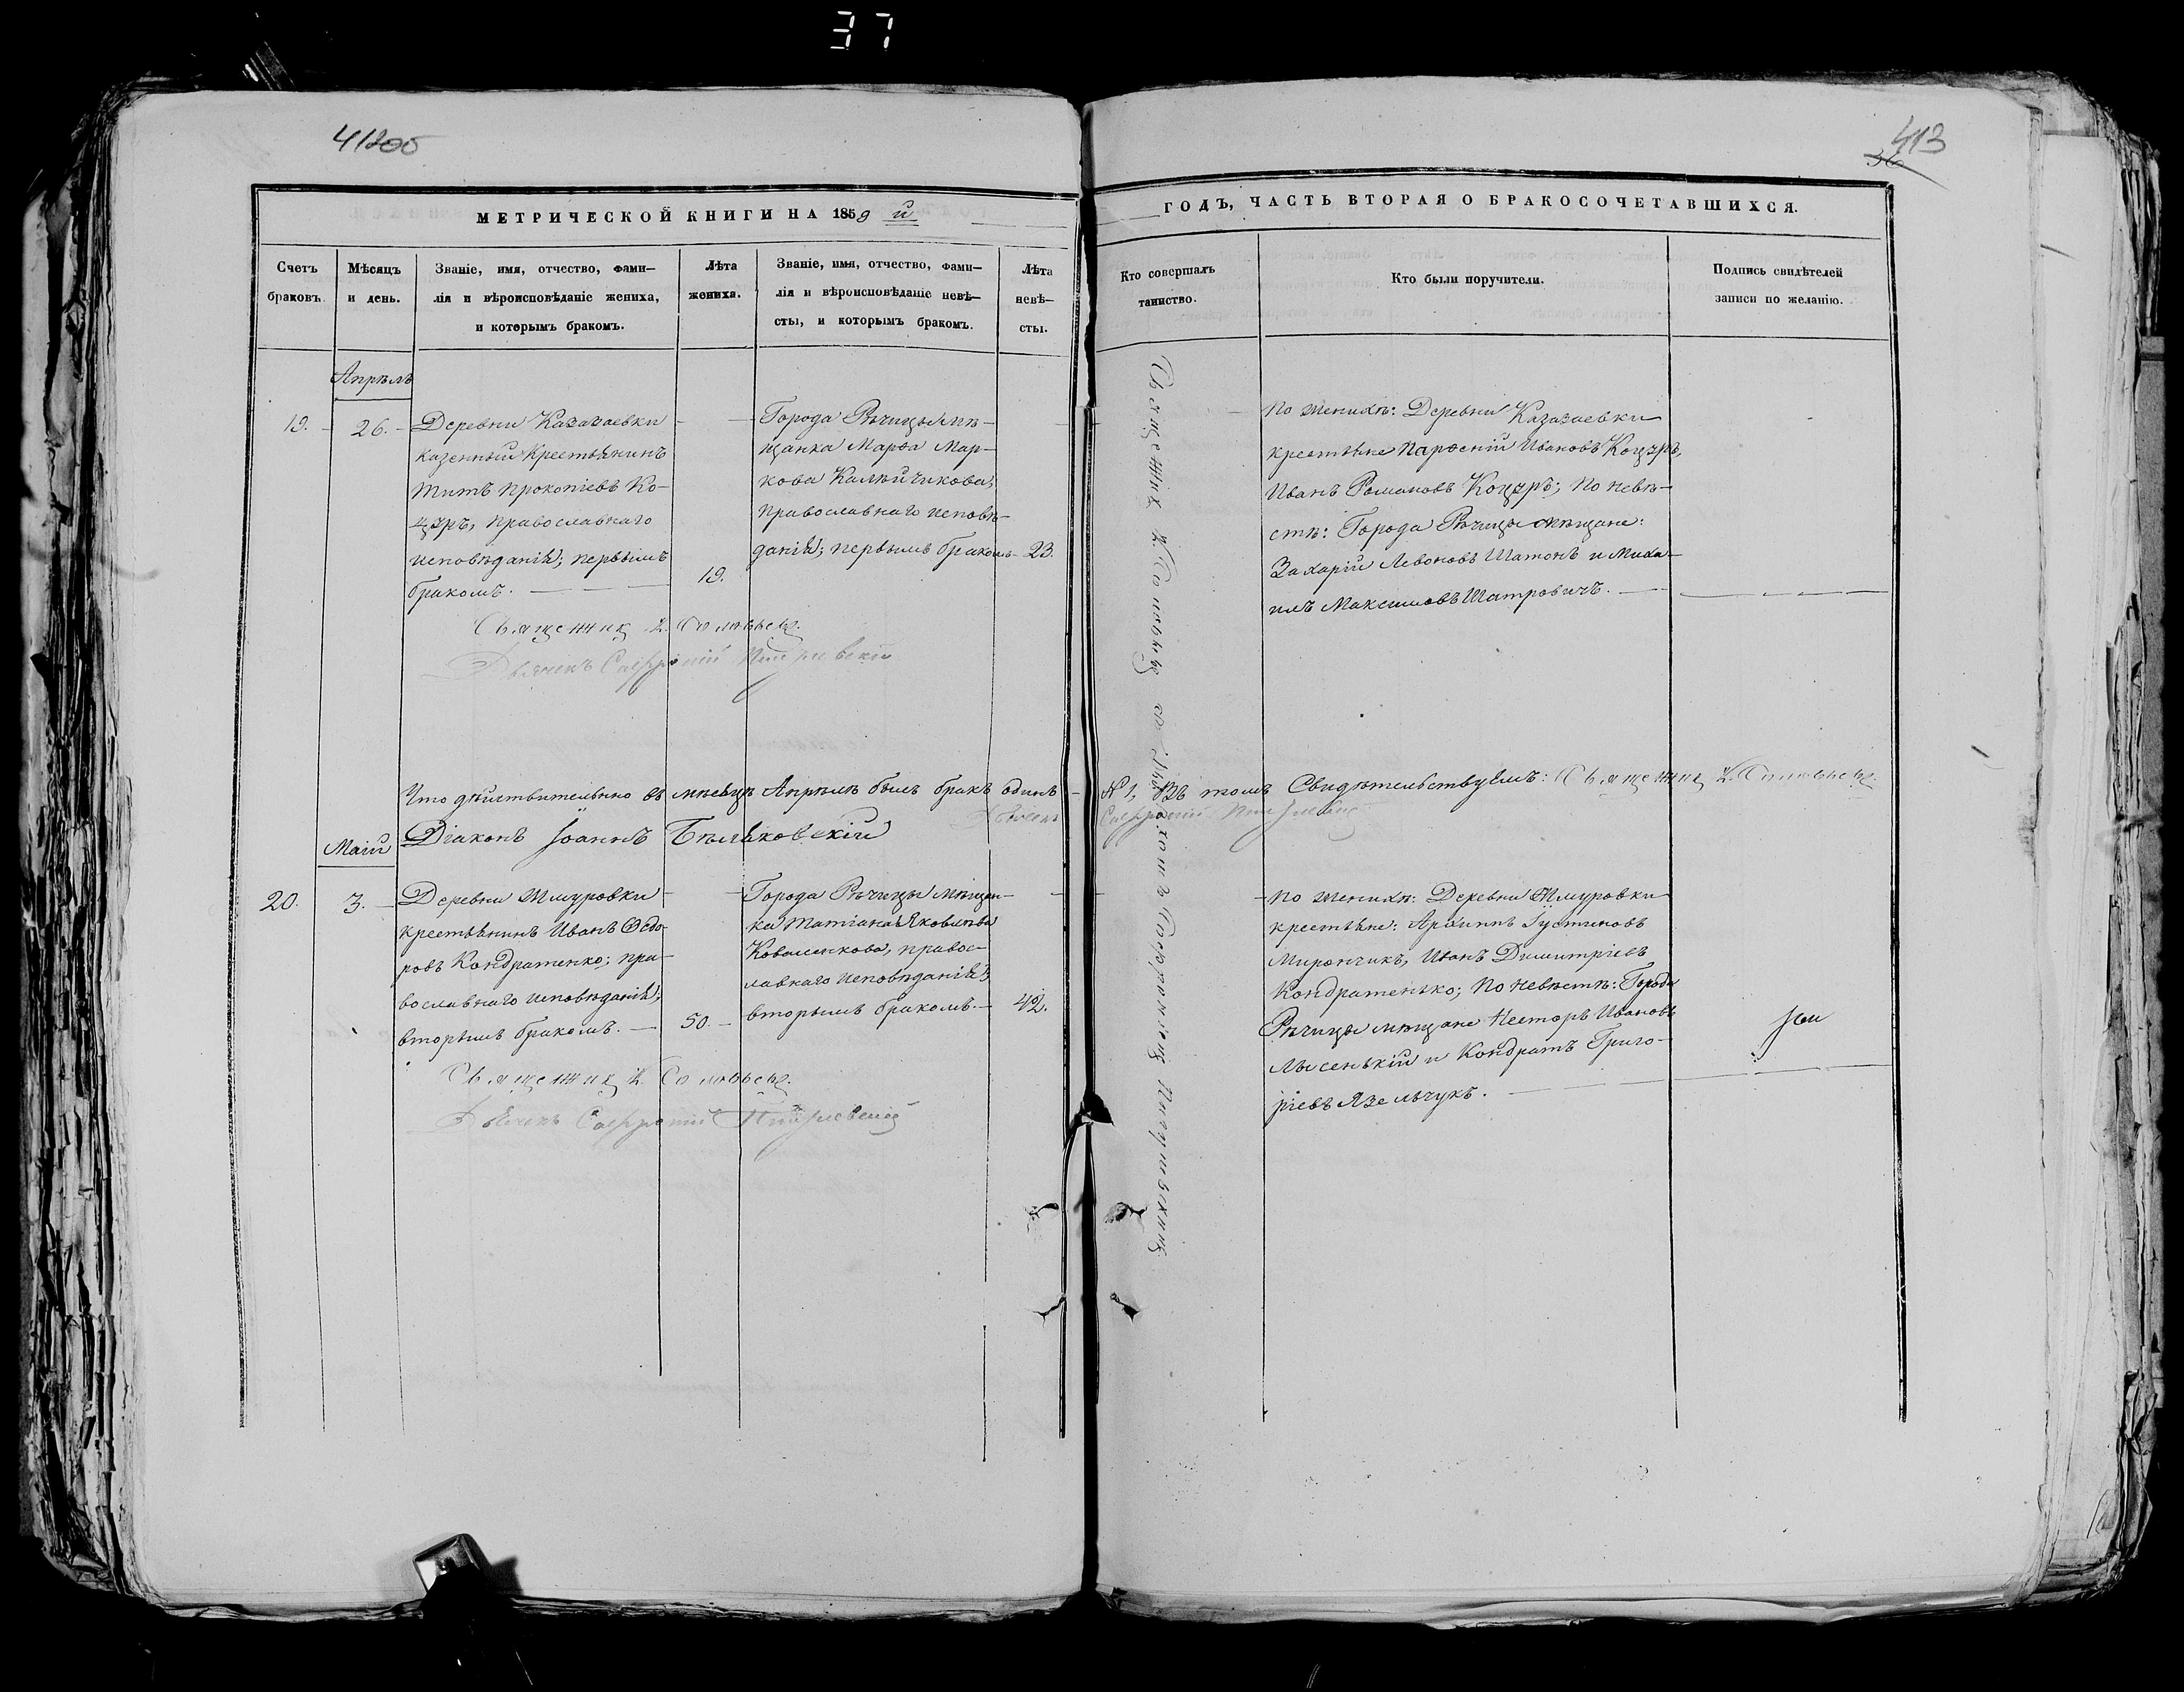 37
41200
413
36
МЕТРИЧЕСКОЙ КНИГИ НА 1859 й
ГОДЪ, ЧАСТЬ ВТОРАЯ О БРАКОСОЧЕТАВШИХСЯ.
Счетъ
браковъ.
Мѣсяцъ
и день.
Званіе, имя, отчество, фами-
лія и вѣроисповѣданіе жениха,
и которымъ бракомъ.
Лѣта
жениха.
Званіе, имя, отчество, фами-
лія и вѣроисповѣданіе невѣ-
сты, и которымъ бракомъ.
Лѣта
невѣ-
сты.
Кто совершалъ
таинство.
Кто были поручители.
Подпись свидѣтелей
записи по желанію.
Апрѣль
19.
26.
Деревни Казазаевки
казенный крестьянинъ
Титъ Прокопіевъ Ко-
цуръ, православнаго
исповѣданія; первымъ
бракомъ.
19.
Города Рѣчицы мѣ-
щанка Марѳа Мар-
кова Калѣйчикова,
православнаго исповѣ-
данія; первымъ бракомъ
23.
Священник Соловьев с
По женихѣ: Деревни Казазаевки
крестьяне Парѳеній Ивановъ Коцуръ,
Иванъ Романовъ Коцуръ; по невѣ-
стѣ: Города Рѣчицы мѣщане:
Захарій Левоновъ Шатонъ и Миха-
илъ Максимовъ Шатровичъ.
Священник Соловьев.
Дьячекъ
Что дѣйствительно въ мѣсяцѣ Апрѣлѣ былъ бракъ одинъ
№ 1, въ томъ свидѣтельствуемъ: Священник Соловьев.
Дьячекъ
Діаконъ Іоаннъ Бѣляковскій
Маій
20.
3.
Деревни Жмуровки
крестьянинъ Иванъ Ѳедо-
ровъ Кондратенко; пра-
вославнаго исповѣданія;
вторымъ бракомъ.
50.
Города Рѣчицы мѣщан-
ка Татіана Яковлева
Коваленкова, правос-
лавнаго исповѣданія;
вторымъ бракомъ.
42.
По женихѣ: Деревни Жмуровки
крестьяне: Архиппъ Іустиновъ
Мирончикъ, Иванъ Димитріевъ
Кондратенько; По невѣстѣ: Города
Рѣчицы мѣщане Несторъ Ивановъ
Лысенькій и Кондратъ Григо-
ріевъ Язельчукъ.
Священник Соловьев.
Дьячекъ